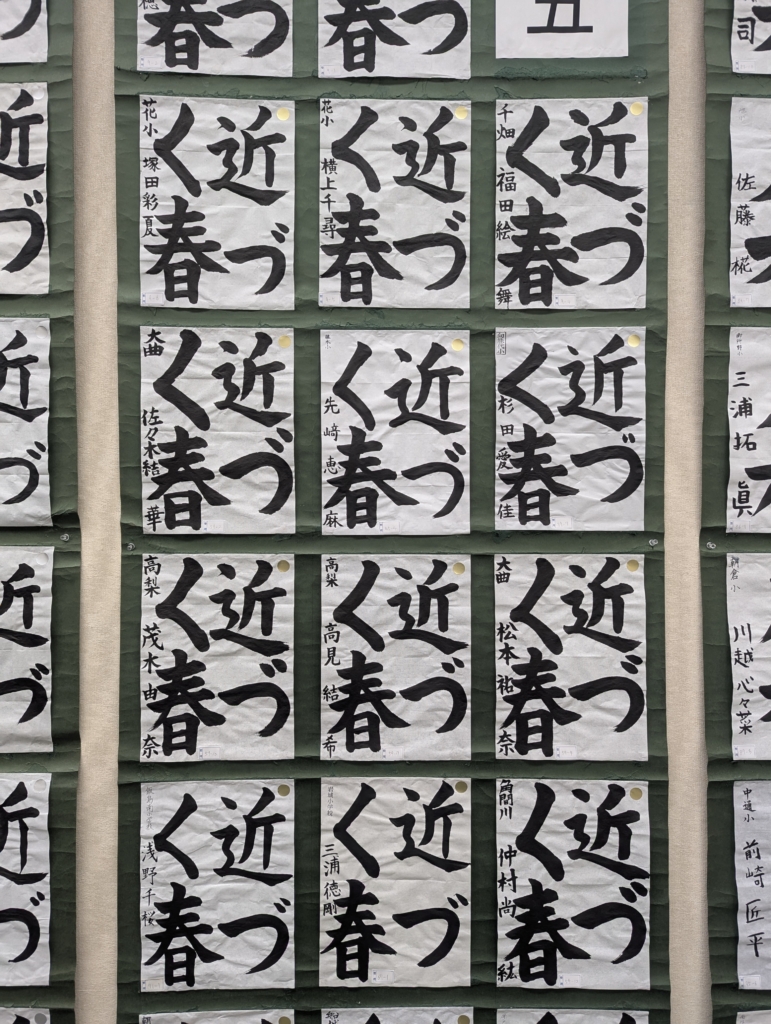 五
近づ
く春
千畑
福田絵舞
近づ
く春
花小
横上千尋
近づ
く春
花小
塚田彩夏
近づ
く春
杉田愛佳
近づ
く春
先﨑恵麻
近づ
く春
大曲
佐々木結華
近づ
く春
大曲
松本祐奈
近づ
く春
高梨
高見結希
近づ
く春
高梨
茂木由奈
近づ
く春
角間川
仲村尚紘
近づ
く春
三浦徳剛
近づ
く春
浅野千桜
司
佐藤椛
三浦拓眞
朝倉小
川越心々菜
中通小
前崎匠平